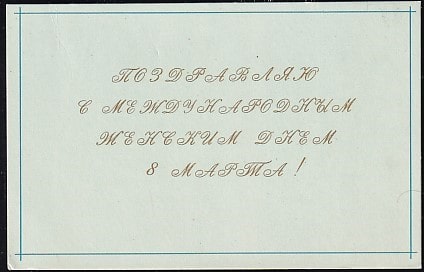 ПОЗДРАВЛЯЮ
С МЕЖДУНАРОДНЫМ
ЖЕНСКИМ ДНЕМ
8 МАРТА!